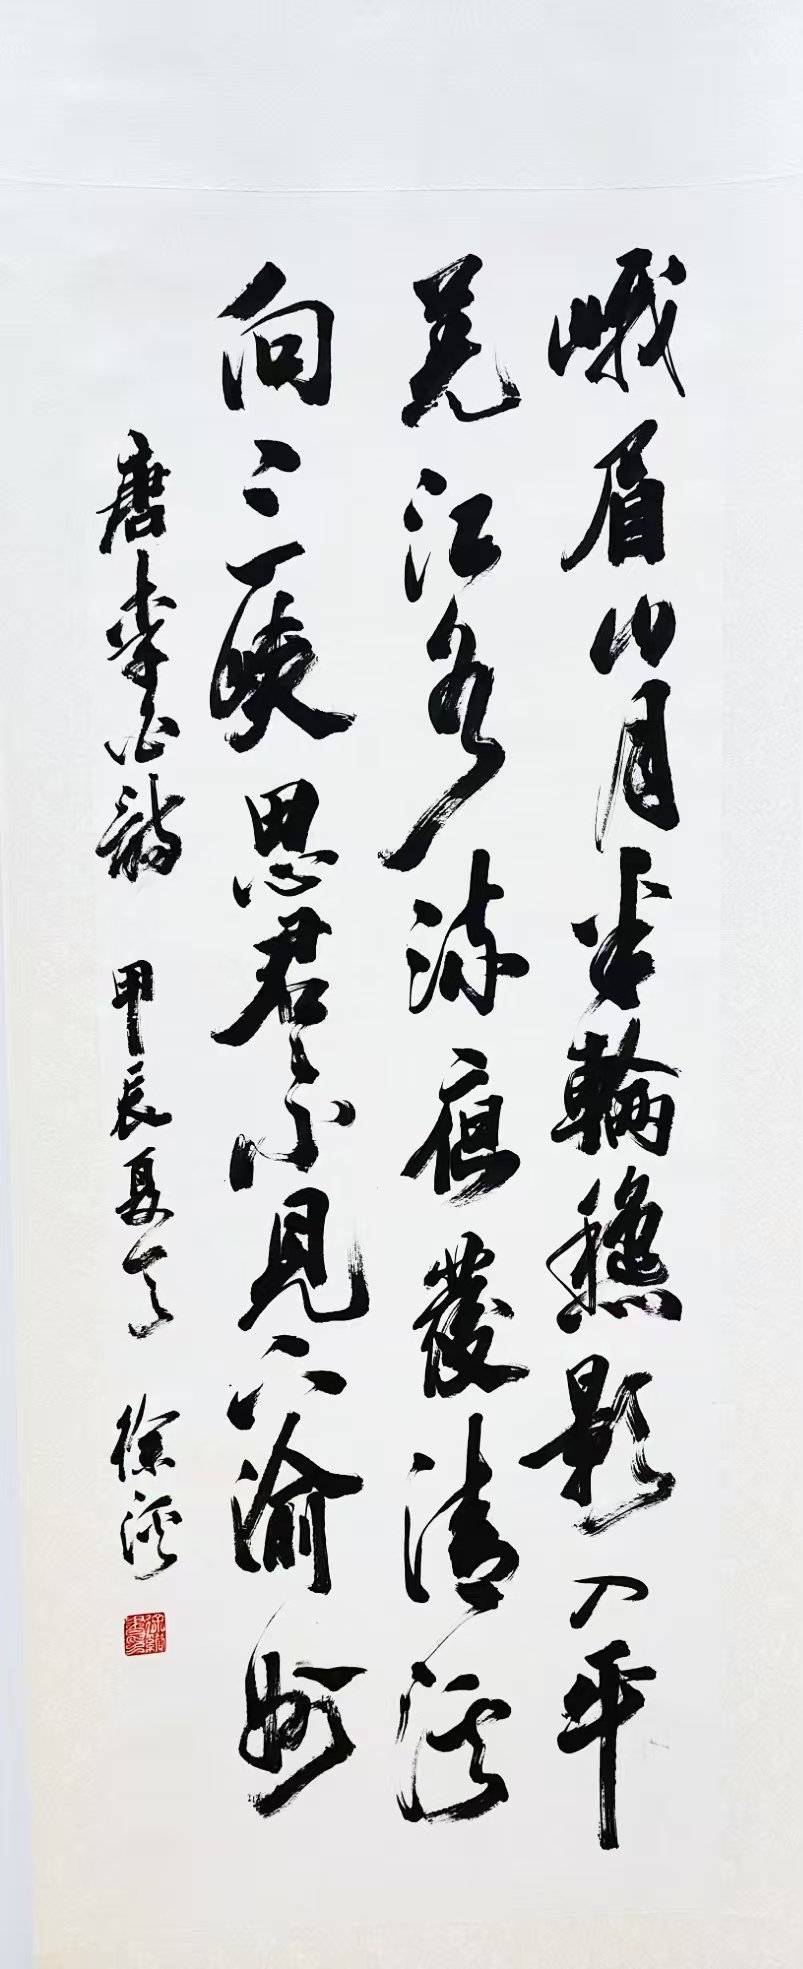 峨眉山月半輪秋影入平
羌江水流夜發清溪
向三峽思君不見下渝州
唐李白詩 甲辰夏月 徐溪